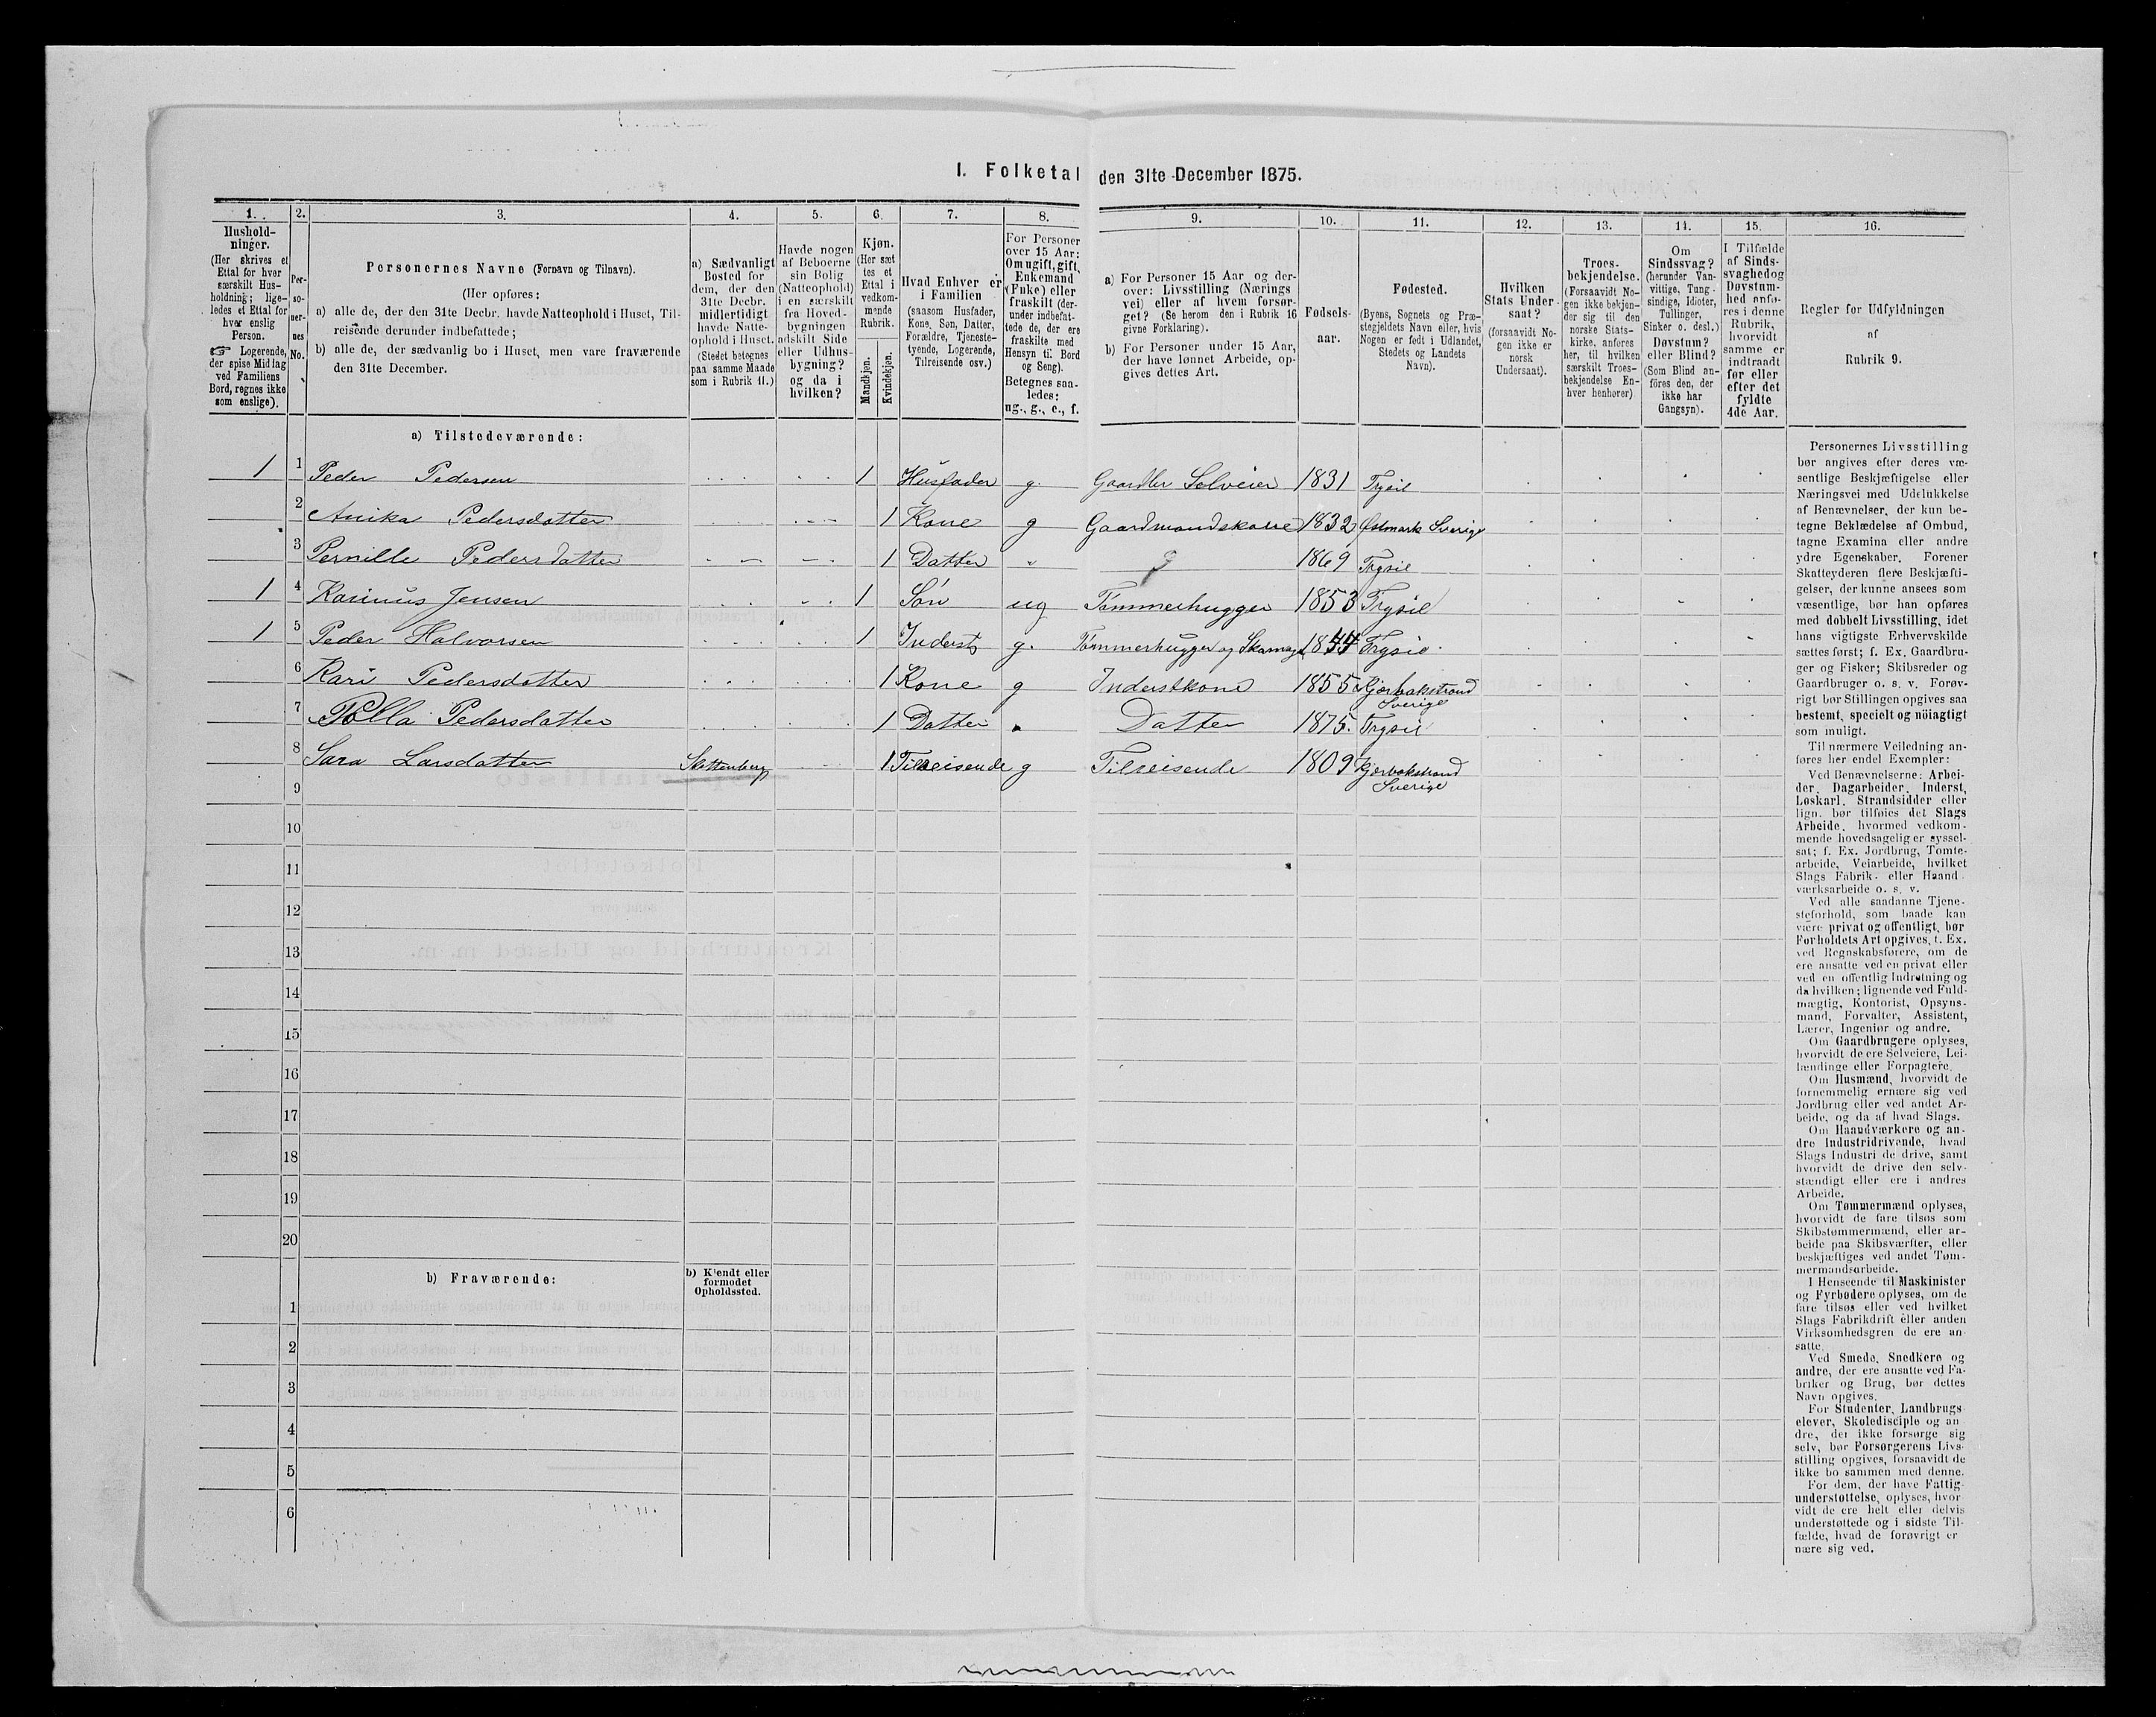 I. Folketal den 31te December 1875.
1. 2. 3. 4. 5. 6. 7. 8. 9. 10. 11. 12. 13. 14. 15. 16.
Hushold-
ninger.
(Her skrives et
Ettal for hver
særskilt Hus-
holdning; lige-
ledes et Ettal for
hver enslig
Person.
☞ Logerende,
der spise Middag
ved Familiens
Bord, regnes ikke
som enslige).
Per-
so-
ner-
nes
No.
Personernes Navne (Fornavn og Tilnavn).
(Her opføres:
a) alle de, der den 31te Decbr. havde Natteophold i Huset, Til-
reisende derunder indbefattede;
b) alle de, der sædvanlig bo i Huset, men vare fraværende
den 31te December.
a) Sædvanligt
Bosted for
dem, der den
31te Decbr.
midlertidigt
havde Natte-
ophold i Huset.
(Stedet betegnes
paa samme Maade
som i Rubrik 11.)
Havde nogen
af Beboerne
sin Bolig
(Natteophold)
i en særskilt
fra Hoved-
bygningen
adskilt Side
eller Udhus-
bygning?
og da i
hvilken?
Kjøn.
(Her sæt
tes et
Ettal i
vedkom-
mende
Rubrik.
Mandkjøn.
Kvindekjøn.
Hvad Enhver er
i Familien
(saasom Husfader,
Kone, Søn, Datter,
Forældre, Tjeneste-
tyende, Logerende,
Tilreisende osv.)
For Personer
over 15 Aar:
Om ugift, gift,
Enkemand
(Enke) eller
fraskilt (der-
under indbefat-
tede de, der ere
fraskilte med
Hensyn til Bord
og Seng).
Betegnes saa-
ledes:
ug., g., e., f.
a) For Personer 15 Aar og der-
over: Livsstilling (Nærings
vei) eller af hvem forsør-
get? (Se herom den i Rubrik 16
givne Forklaring).
b) For Personer under 15 Aar,
der have lønnet Arbeide, op-
gives dettes Art.
Fødsels-
aar.
Fødested.
(Byens, Sognets og Præ-
stegjeldets Navn eller, hvis
Nogen er født i Udlandet,
Stedets og Landets
Navn).
Hvilken
Stats Under-
saat?
(forsaavidt No-
gen ikke er
norsk
Undersaat).
Troes-
bekjendelse.
(Forsaavidt No-
gen ikke bekjen-
der sig til den
norske Stats-
kirke, anføres
her, til hvilken
særskilt Troes-
bekjendelse En-
hver henhører)
Om
Sindssvag?
(herunder Van-
vittige, Tung-
sindige, Idioter,
Sinker o. desl.)
Døvstum?
eller Blind?
(Som Blind an-
föres den, der
ikke har
Gangsyn).
I Tilfælde
af Sinds-
svaghed og
Døvstum-
hed anfø-
res i denne
Rubrik,
hvorvidt
samme er
indtraadt
før eller
efter det
fyldte
4de Aar.
Regler for Udfyldningen
af
Rubrik 9.
a) Tilstedeværende:
1 1 Peder Pedersen 1 Husfader g. Gaardbr Selveier 1831 Trysil
2 Anika Pedersdatter 1 Kone g Gaardmandskone 1832 Östmark Sverige
3 Pernille Pedersdatter 1 Datter 1869 Trysil
1 4 Karinus Jensen 1 Søn ug Tømmerhugger 1853 Trysil
1 5 Peder Halvorsen 1 Inderst g. Tømmerhugger og Skomag 1844 Trysil
6 Kari Pedersdatter 1 Kone g Inderstkone 1855
Sverige
7 Polla Pedersdatter 1 Datter Datter 1875. Trysil
8 Sara Larsdatter 1 Tilreisende g Tilreisende 1809
Sverige
9
10
11
12
13
14
15
16
17
18
19
20
b) Fraværende:
b) Kjendt eller
formodet
Opholdssted.
1
2
3
4
5
6
Personernes Livsstilling
bør angives efter deres væ-
sentlige Beskjæftigelse eller
Næringsvei med Udelukkelse
af Benævnelser, der kun be-
tegne Beklædelse af Ombud,
tagne Examina eller andre
ydre Egenskaber. Forener
Skatteyderen flere Beskjæfti-
gelser, der kunne ansees som
væsentlige, bør han opføres
med dobbelt Livsstilling, idet
hans vigtigste Erhvervskilde
sættes først; f. Ex. Gaardbru-
ger og Fisker; Skibsreder og
Gaardbruger o. s. v. Forøv-
rigt bør Stillingen opgives saa
bestemt, specielt og nöiagtigt
som muligt.
Til nærmere Veiledning an-
føres her endel Exempler:
Ved Benævnelserne: Arbei-
der, Dagarbeider, Inderst,
Løskarl, Strandsidder eller
lign. bør tilføies det Slags
Arbeide, hvormed vedkom-
mende hovedsagelig er syssel-
sat; f. Ex. Jordbrug, Tomte-
arbeide, Veiarbeide, hvilket
Slags Fabrik- eller Haand-
værksarbeide o. s. v.
Ved alle saadanne Tjene-
steforhold, som baade kan
være privat og offentligt, bør
Forholdets Art opgives, t. Ex.
ved Regnskabsførere, om de
ere ansatte ved en privat eller
ved en offentlig Indretning og
da hvilken; lignende ved Fuld-
mægtig, Kontorist, Opsyns-
mand, Forvalter, Assistent,
Lærer, Ingeniør og andre.
Om Gaardbrugere oplyses,
hvorvidt de ere Selveiere, Lei-
lændinge eller Forpagtere.
Om Husmænd, hvorvidt de
fornemmelig ernære sig ved
Jordbrug eller ved andet Ar-
beide, og da af hvad Slags.
Om Haandværkere og an-
dre Industridrivende, hvad
Slags Industri de drive, samt
hvorvidt de drive den selv-
stændigt eller ere i andres
Arbeide.
Om Tømmermænd oplyses,
hvorvidt de fare tilsøs som
Skibstømmermænd, eller ar-
beide paa Skibsværfter, eller
beskjæftiges ved andet Tøm-
mermandsarbeide.
I Henseende til Maskinister
og Fyrbødere oplyses, om de
fare tilsøs eller ved hvilket
Slags Fabrikdrift eller anden
Virksomhedsgren de ere an-
satte.
Ved Smede, Snedkere og
andre, der ere ansatte ved Fa-
briker og Brug, bør dettes
Navn opgives.
For Studenter, Landbrugs
elever, Skoledisciple og an
dre, der ikke forsørge sig
selv, bør Forsørgerens Livs-
stilling opgives, forsaavidt de
ikke bo sammen med denne.
For dem, der have Fattig-
understøttelse, oplyses, hvor
vidt de ere helt eller delvis
understøttede og i sidste Til-
fælde, hvad de forøvrigt er
nære sig ved.